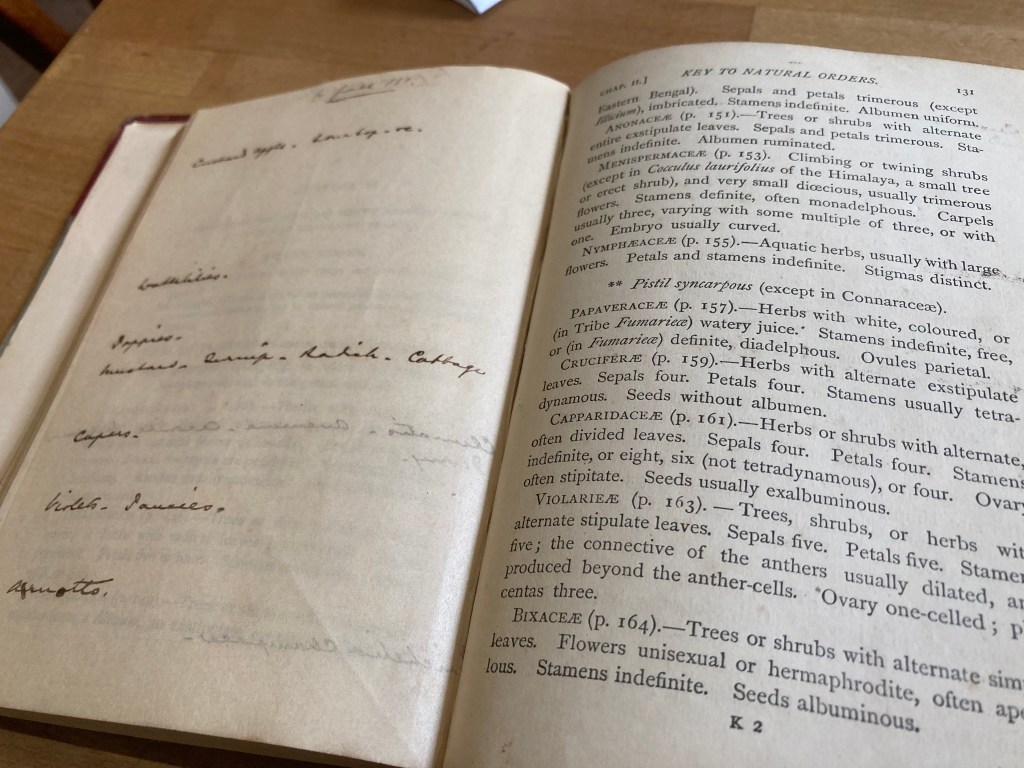 Custard apple -
Waterlilies.
Poppies.
Mustard - Turnip - Radish - Cabbage
Capers.
Violets - Pansies.
Arnotto.
CHAP. II.] KEY TO NATURAL ORDERS. 131
Eastern Bengal). Sepals and petals trimerous (except
Illicium), imbricated. Stamens indefinite. Albumen uniform.
ANONACEÆ (p. 151).—Trees or shrubs with alternate
entire exstipulate leaves. Sepals and petals trimerous. Sta-
mens indefinite. Albumen ruminated.
MENISPERMACEÆ (p. 153). Climbing or twining shrubs
(except in Cocculus laurifolius of the Himalaya, a small tree
or erect shrub), and very small diœcious, usually trimerous
flowers. Stamens definite, often monadelphous. Carpels
usually three, varying with some multiple of three, or with
one. Embryo usually curved.
NYMPHÆACEÆ (p. 155).—Aquatic herbs, usually with large
flowers. Petals and stamens indefinite. Stigmas distinct.
** Pistil syncarpous (except in Connaraceæ).
PAPAVERACEÆ (p. 157).—Herbs with white, coloured, or
(in Tribe Fumarieæ) watery juice. Stamens indefinite, free,
or (in Fumarieæ) definite, diadelphous. Ovules parietal.
CRUCIFERÆ (p. 159).—Herbs with alternate exstipulate
leaves. Sepals four. Petals four. Stamens usually tetra-
dynamous. Seeds without albumen.
CAPPARIDACEÆ (p. 161).—Herbs or shrubs with alternate,
often divided leaves. Sepals four. Petals four. Stamens
indefinite, or eight, six (not tetradynamous), or four. Ovary
often stipitate. Seeds usually exalbuminous.
VIOLARIEÆ (p. 163).—Trees, shrubs, or herbs wit
alternate stipulate leaves. Sepals five. Petals five. Stamen
five; the connective of the anthers usually dilated, an
produced beyond the anther-cells. Ovary one-celled; p
centas three.
BIXACEÆ (p. 164).—Trees or shrubs with alternate sim
leaves. Flowers unisexual or hermaphrodite, often ape
lous. Stamens indefinite. Seeds albuminous.
K 2